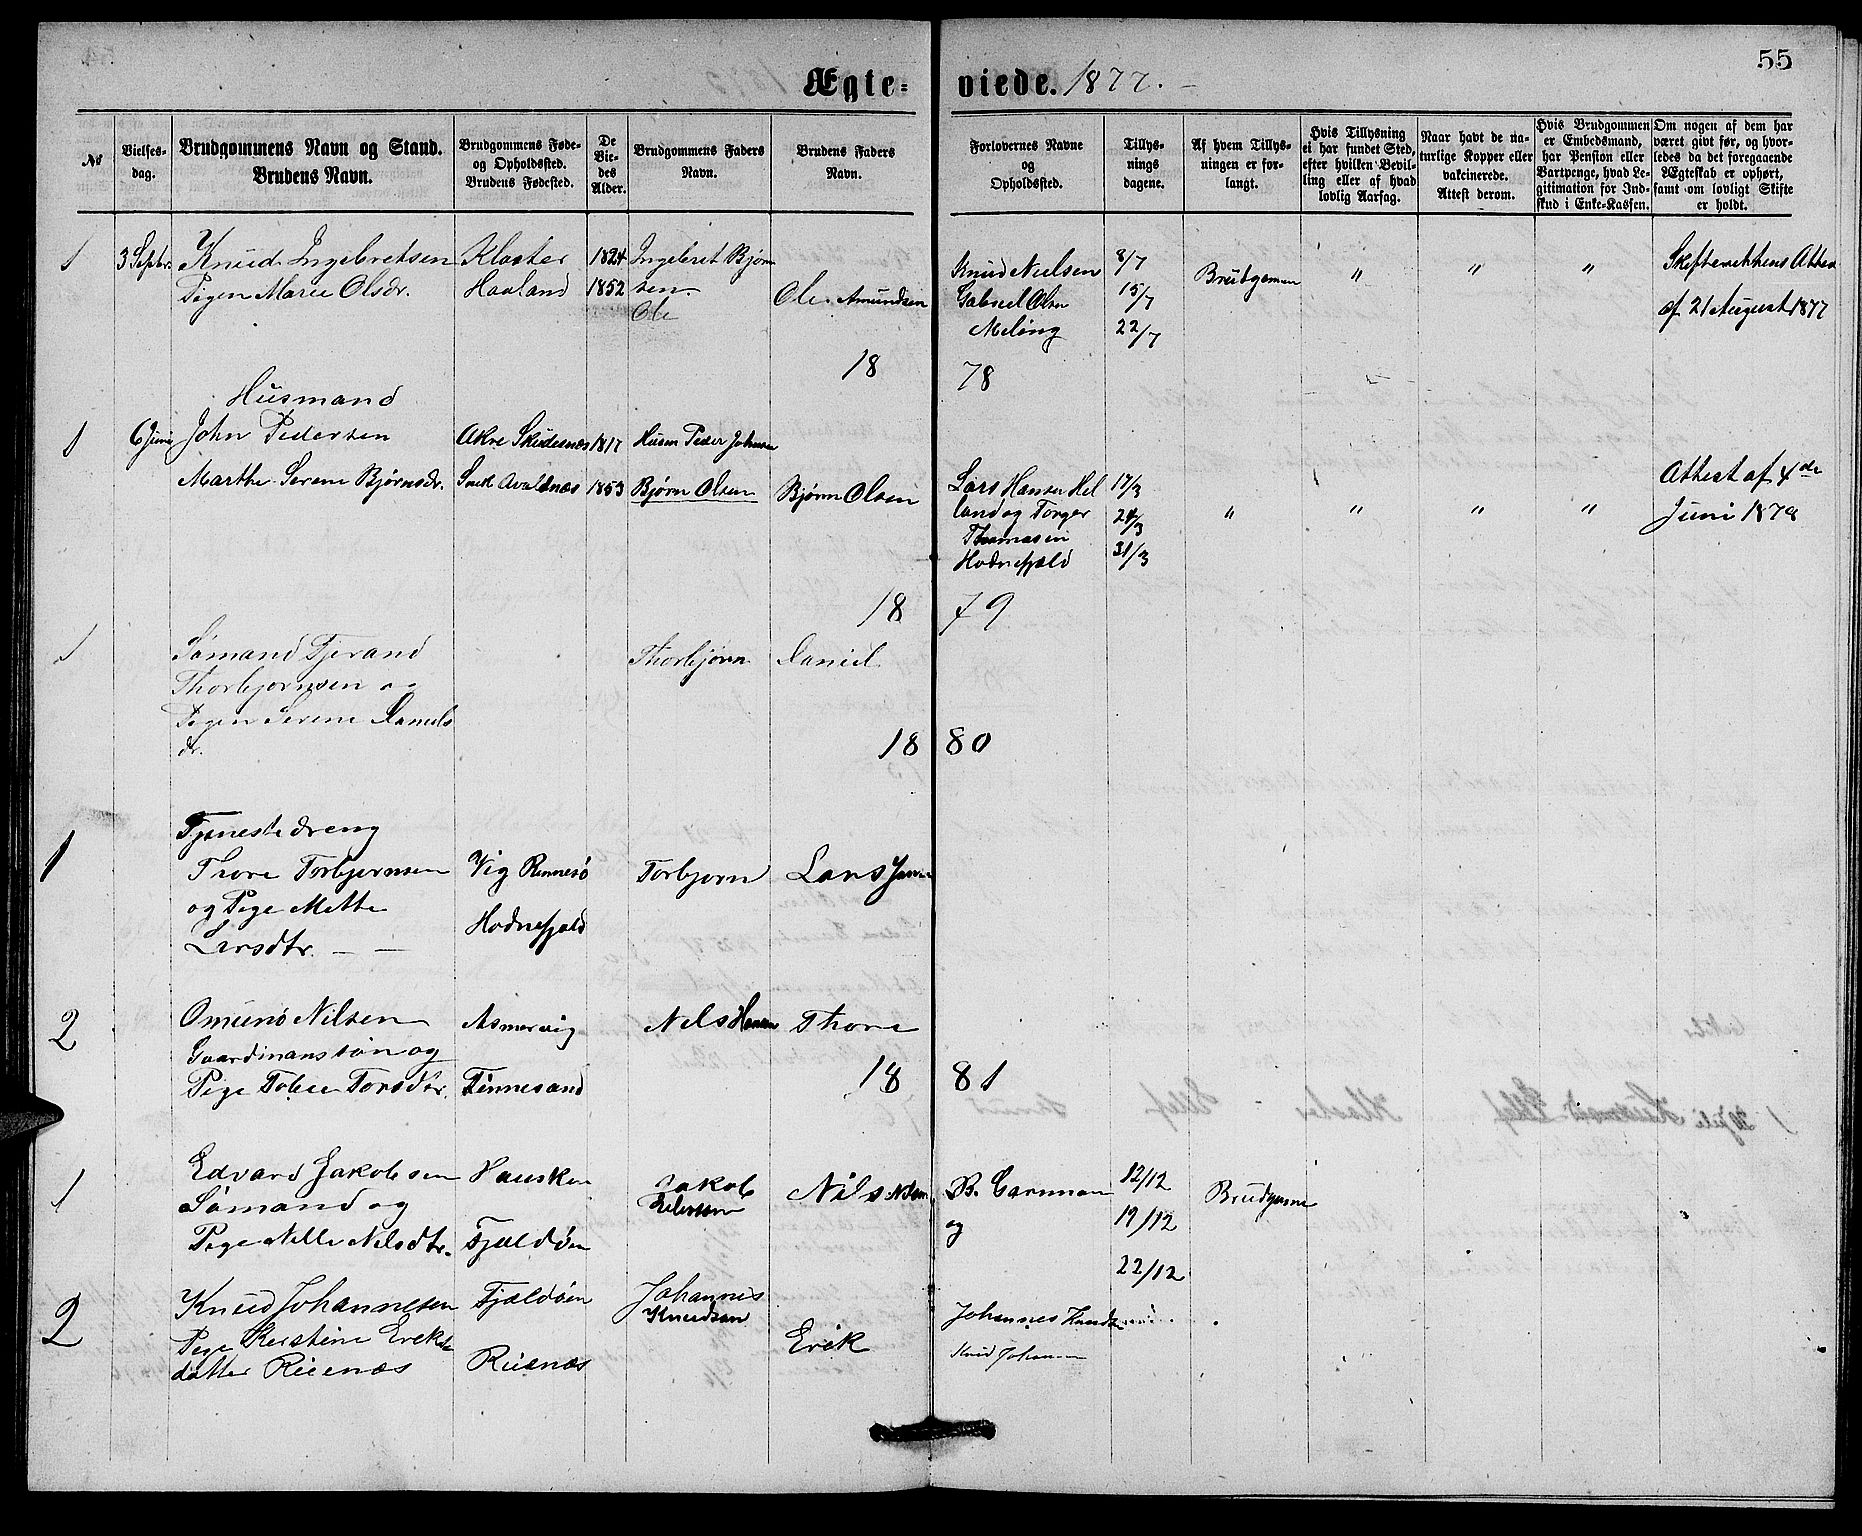 55
Ægteviede. 1877.
No
Vielsesdag.
Brudgommens Navn og Stand.
Brudens Navn.
Brudgommens Føde-
og Opholdssted.
Brudens Fødested.
De
Vie-
des
Alder.
Brudgommens Faders
Navn.
Brudens Faders
Navn.
Forlovernes Navne
og
Opholdssted.
Tillys-
nings
dagene.
Af hvem Tillys-
ningen er for-
langt.
Hvis Tillysning
ei har fundet Sted,
efter hvilken Bevil-
ling eller af hvad
lovlig Aarsag.
Naar havt de na-
turlige Kopper eller
vakcinerede.
Attest derom.
Hvis Brudgommen
er Embedsmand,
har Pension eller
Vartpenge, hvad Le-
gitimation for Ind-
skud i Enke-Kassen.
Om nogen af dem har
været givt før, og hvor-
ledes da det foregaaende
Ægteskab er ophørt,
samt om lovligt Skifte
er holdt.
1 3 Septbr. Knud Ingebretsen Kloster 1824 Ingebret Bjørn Knud Nielsen 8/7 Brudgomen " " " Skifterettens Attest
Pigen Marie Olsdr. Haaland 1852 sen Ole Amundsen Gabriel Olsn 15/7 af 21 August 1877
Ole Meling 22/7
18 78
Husmand
1 6 Juni John Pedersen Akre Skudesnæs 1817 Husm Peder Johnsen
Marthe Serine Bjørnsdr. Avaldnæs 1853 Bjørn Olsen Bjørn Olsen Lars Hansen Hel 17/3 Attest af 4de
land og Torger 24/3 " " " " Juni 1878
Thomasen
Hodnefjeld 31/3
18 79
1 Sømand Tjerand Thorbjørn Daniel
Thorbjørnsen og
Pigen Serine Daniels
dr.
18 80
Tjenestedreng
1 Thore Torbjørnsen Vig Rennesø Torbjørn Lars
og Pige Mette
Larsdtr. Hodnefjeld
2 Omund Nilsen Asmervig Nels Hansen Thore
Gaardmanssøn og
Pige Tobea Torsdtr. Finnesand
18 81
1 Edvard Jakobsen Hausken Jakob Nils B. Carmon 12/12 Brudgome
Sømand og og 19/12
Pige Nelle Nilsdtr. Fjældøen
22/12
2 Knud Johannesen Fjældøen Johannes
Knudsen Johannes Knudsen
Pige Kirstine Ereks Erik Knud Johannesen
datter Reienæs Reienæs